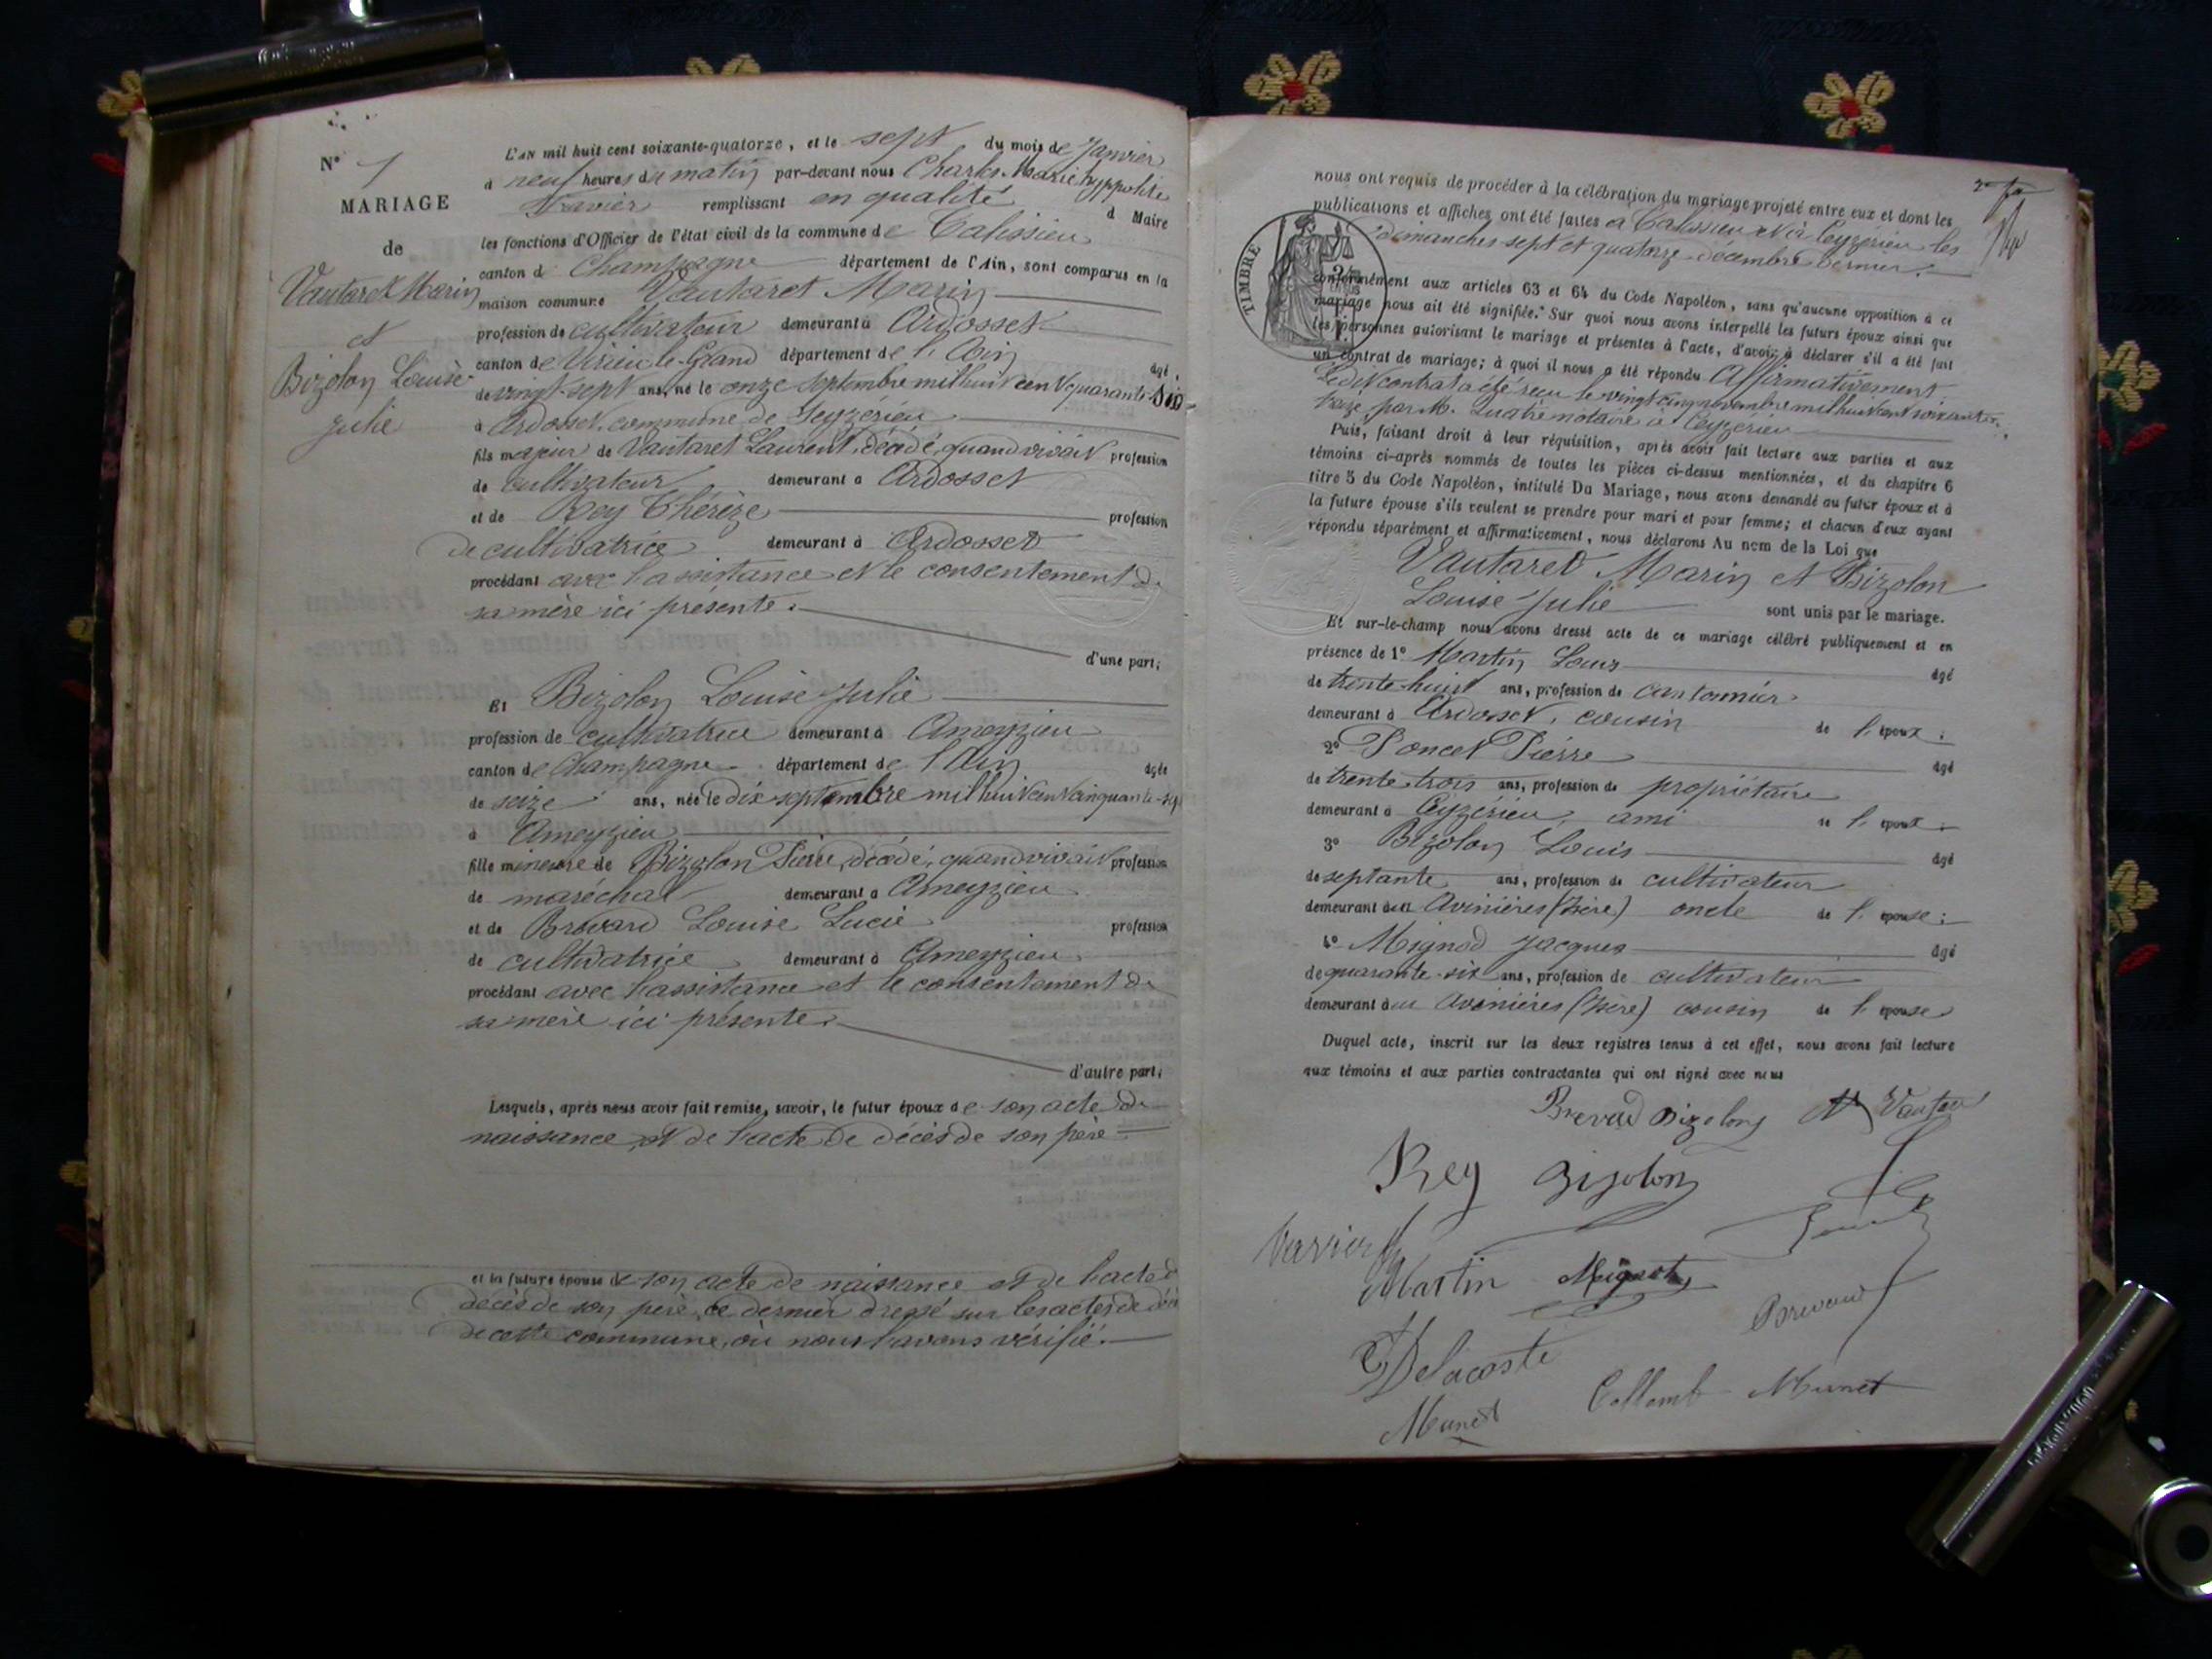 N° 1
MARIAGE
de
Vautaret Marin
et
Bizolon Louise
Julie
L'AN mil huit cent soixante-quatorze, et le sept du mois de Janvier
à neuf heures du matin par-devant nous Charles Marie hyppolite
remplissant en qualité d Maire
les fonctions d'Officier de l'état civil de la commune de Talissieu
canton d Champagne département de l'Ain, sont comparus en la
maison commune Vautaret Marin
profession de cultivateur demeurant à Ardosset
canton de Virieu le Grand département de l'Ain âgé
de vingt-sept ans, né le onze Septembre mil huit cent quarante-six
à Ardosset, commune de Ceyzérieu
fils majeur de Vautaret Laurent, décédé, quand vivait profession
de cultivateur demeurant à Ardosset
et de Rey Thérèze profession
de cultivatrice demeurant à Ardosset
procédant avec l'assistance et le consentement de
sa mère ici présente.
d'une part;
Et Bizolon Louise Julie
profession de cultivatrice demeurant à Ameyzieu
canton de Champagne département de l'Ain âgée
de seize ans, née le dix septembre mil huit cent cinquante-sept
à Ameyzieu
fille mineure de Bizolon Pierre, décédé, quand vivait profession
de maréchal demeurant à Ameyzieu
et de Brevard Louise Lucie profession
de cultivatrice demeurant à Ameyzieu
procédant avec l'assistance et le consentement de
sa mère ici présente.
d'autre part;
Lesquels, après nous avoir fait remise, savoir, le futur époux de son acte de
naissance et de l'acte de décès de son père
et la future épouse de son acte de naissance et de l'acte d
décès de son père, ce dernier dressé sur les actes de décès
de cette commune, où nous l'avons vérifié.
nous ont requis de procéder à la célébration du mariage projeté entre eux et dont les
publications et affiches ont été faites à Talissieu et à Ceyzérieu les
dimanches sept et quatorze décembre dernier.
TIMBRE
conformément aux articles 63 et 64 du Code Napoléon, sans qu'aucune opposition à ce
mariage nous ait été signifiée. Sur quoi nous avons interpellé les futurs époux ainsi que
les personnes autorisant le mariage et présentes à l'acte, d'avoir à déclarer s'il a été fait
un contrat de mariage; à quoi il nous a été répondu Affirmativement.
Ledit contrat a été reçu le vingt cinq novembre mil huit cent soixante
treize par M. notaire à Ceyzérieu
Puis, faisant droit à leur réquisition, après avoir fait lecture aux parties et aux
témoins ci-après nommés de toutes les pièces ci-dessus mentionnées, et du chapitre 6
titre 5 du Code Napoléon, intitulé Du Mariage, nous avons demandé au futur époux et à
la future épouse s'ils veulent se prendre pour mari et pour femme; et chacun d'eux ayant
répondu séparément et affirmativement, nous déclarons Au nom de la Loi que
Vautaret Marin et Bizolon
Louise Julie sont unis par le mariage.
Et sur-le-champ nous avons dressé acte de ce mariage célébré publiquement et en
présence de 1° Martin Louis âgé
de trente-huit ans, profession de cantonnier
demeurant à Ardosset, cousin de l'époux;
2° Poncet Pierre âgé
de trente-trois ans, profession de propriétaire
demeurant à Ceyzérieu, ami de l'époux;
3° Bizolon Louis âgé
de septante ans, profession de cultivateur
demeurant aux Avinières (Isère) oncle de l'épouse;
4° Mignod Jacques âgé
de quarante-six ans, profession de cultivateur
demeurant aux Avinières (Isère) cousin de l'épouse
Duquel acte, inscrit sur les deux registres tenus à cet effet, nous avons fait lecture
aux témoins et aux parties contractantes qui ont signé avec nous
Brevad Bizolong
Rey Bizolon
Martin Mignot
Brevard
Delacoste
Collomb Munet
Munet